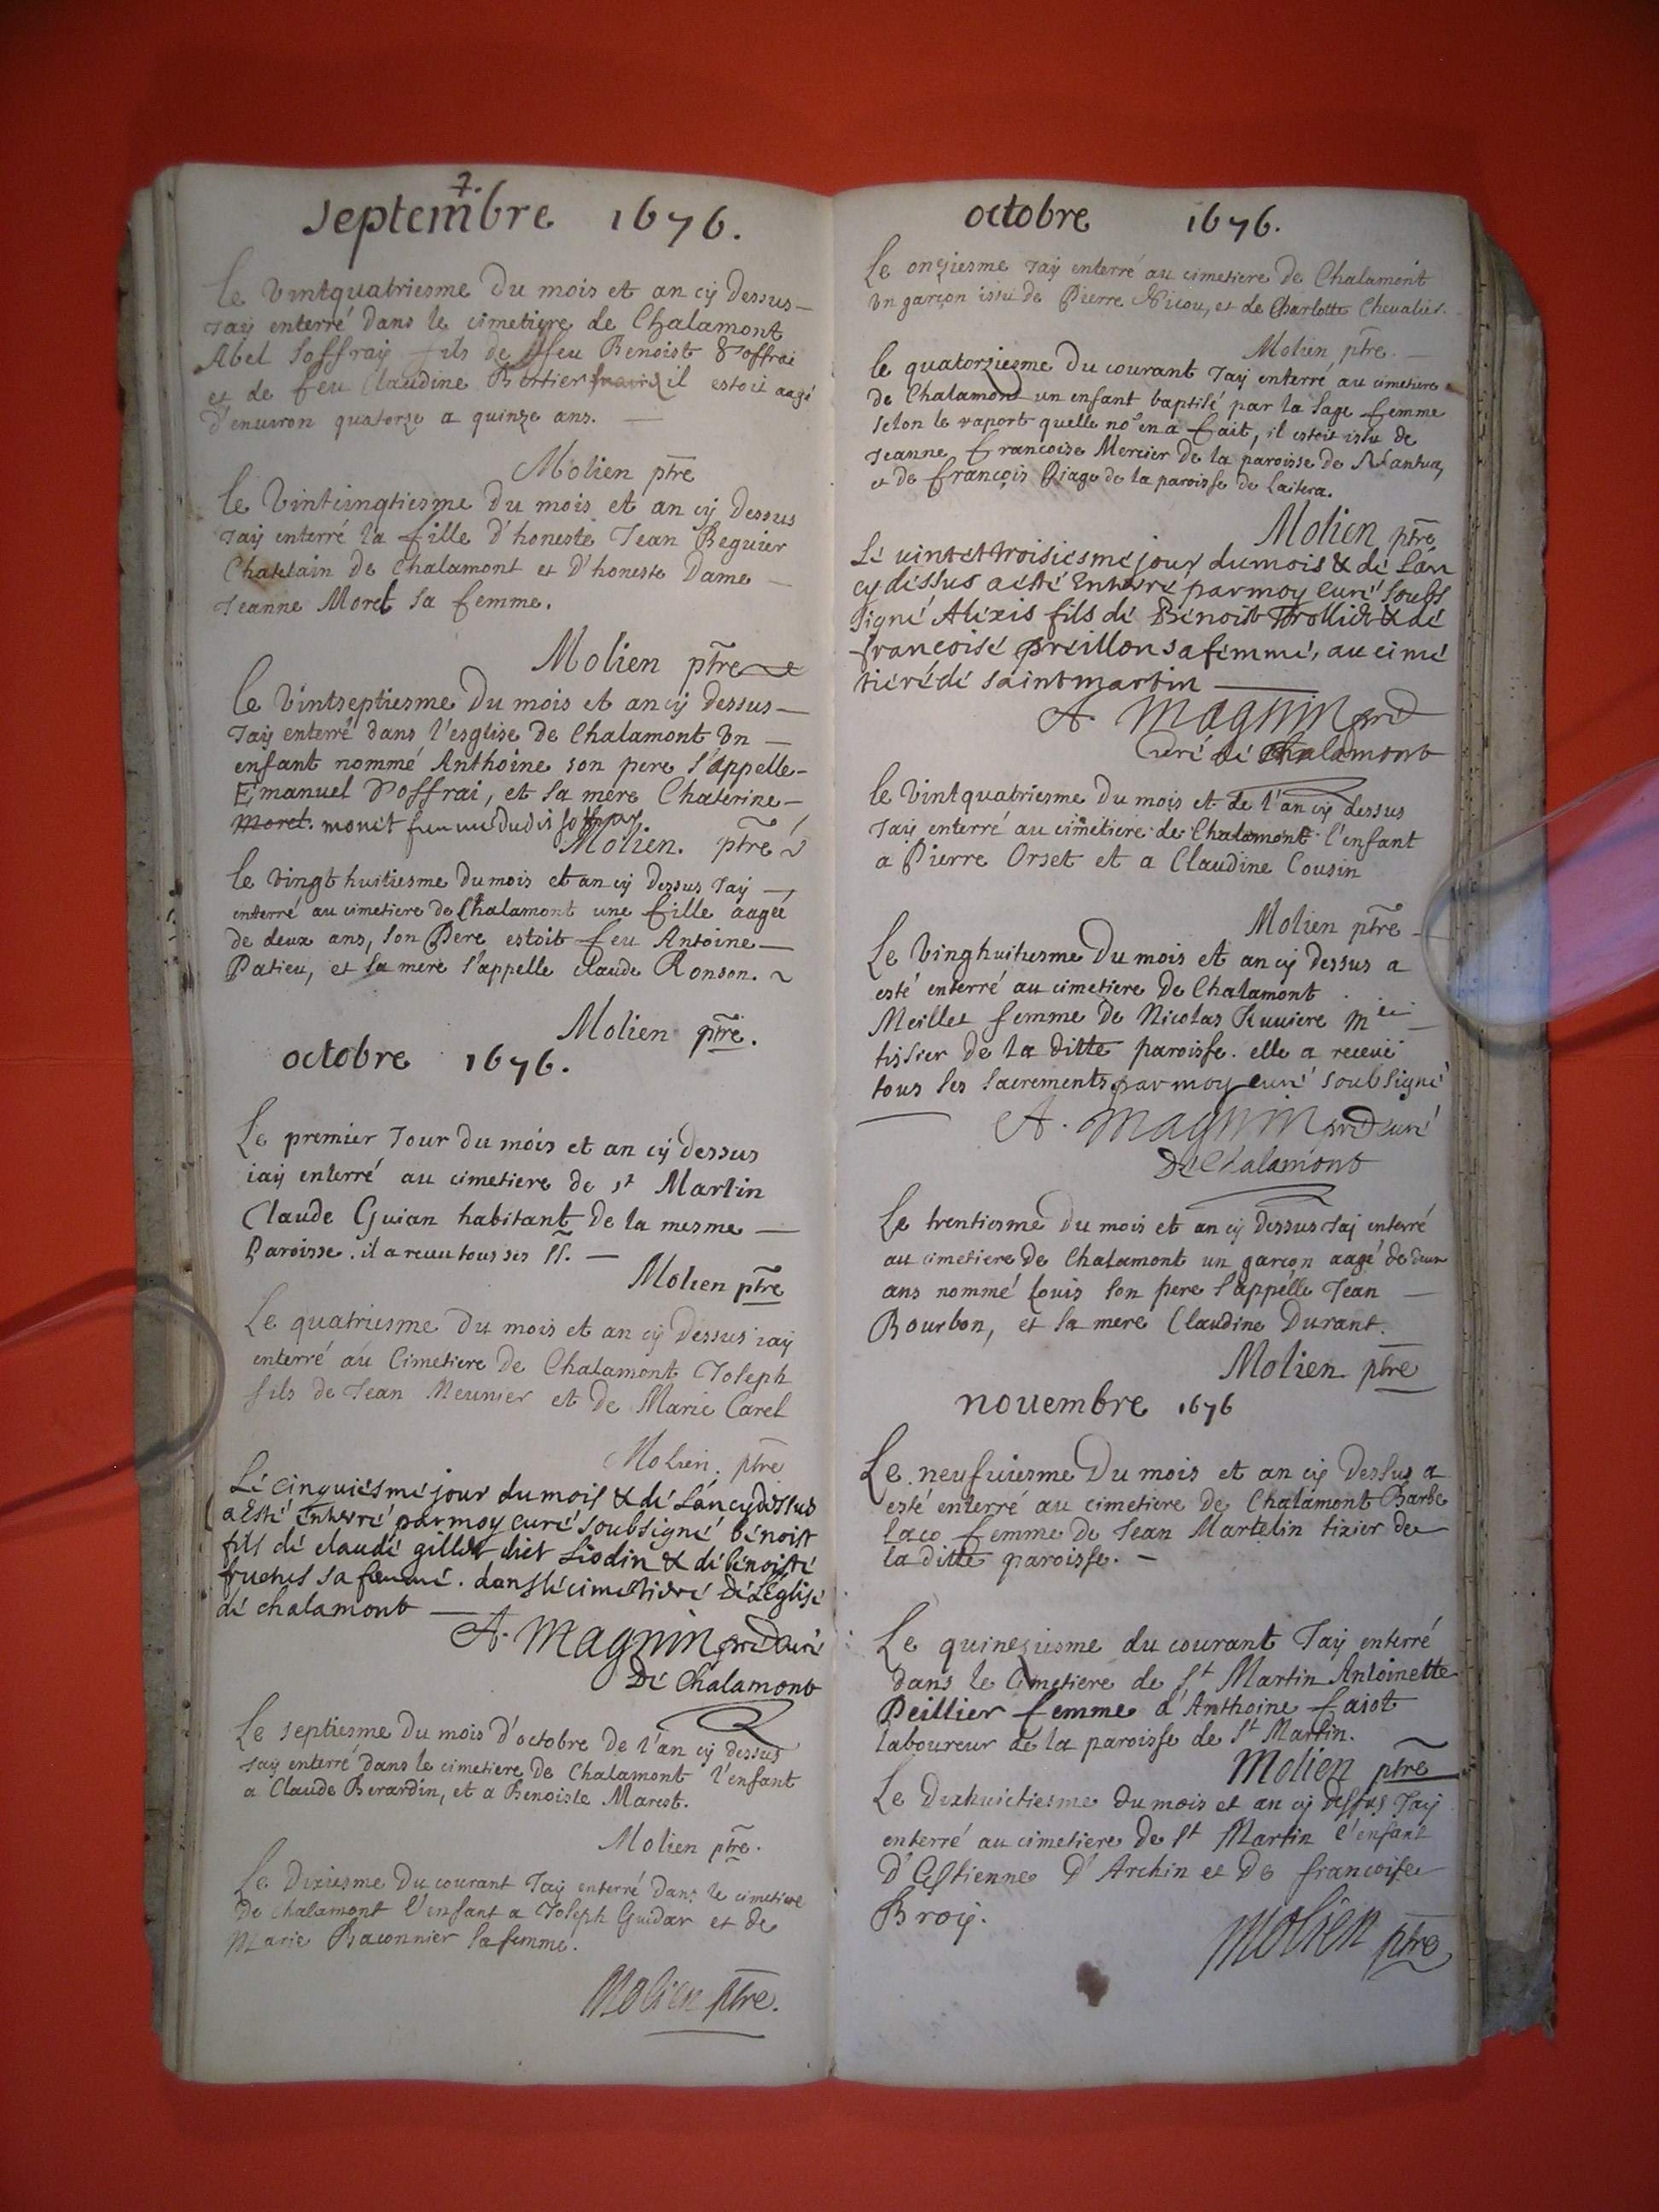 7.
septembre 1676.
Le vintquatriesme du mois et an cÿ dessus
Jaÿ enterré dans le cimetiere de Chalamont
Abel Soffraÿ fils de feu Benoist Soffrai
et de feu Claudine Bertier il estoit aagé
d'enuiron quatorze a quinze ans.
Molien ptre
le vintcinqtiesme du mois et an cÿ dessus
Jaÿ enterré la fille d'honeste Jean Beguier
Chatelain de Chalamont et d'honeste Dame
Jeanne Moret sa femme.
Molien ptre
le vintseptiesme du mois et an cÿ dessus
Jaÿ enterré dans l'esglise de Chalamont vn
enfant nommé Anthoine son pere s'appelle
Emanuel Soffrai, et sa mere Chaterine
moret. monet femme dudit
Molien. ptre
le vingt huitiesme du mois et an cÿ dessus Jaÿ
enterré au cimetiere de Chalamont une fille aagéé
de deux ans, son Pere estoit feu Antoine
Patieu, et sa mere s'appelle claude Ronson.
Molien ptre.
octobre 1676.
Le premier Jour du mois et an cÿ dessus
iaÿ enterré au cimetiere de st Martin
Claude Guian habitant de la mesme
Paroisse. il a receu tous ses SS.
Molien ptre
Le quatriesme du mois et an cÿ dessus iaÿ
enterré au Cimetiere de Chalamont Joseph
fils de Jean Meunier et de Marie Carel
Molien. ptre
Le cinquiesme jour du mois & de l'an cy dessus
a esté enterré par moy curé soubsigné benoist
fils de claude gillet dict Liodin & de benoiste
fruches sa femme. dans le cimetiere de L'eglise
de chalamont
A. Magnin curé
De Chalamont
Le septiesme du mois d'octobre de l'an cÿ dessus
Jaÿ enterré dans le cimetiere de Chalamont l'enfant
a Claude Berardin, et a Benoiste Marest.
Molien ptre.
Le dixiesme du courant Jaÿ enterré dans le cimetiere
de Chalamont l'enfant a Joseph Guidar et de
Marie Baconnier sa femme.
Molien ptre.
octobre 1676.
Le onziesme Jaÿ enterré au cimetiere de Chalamont
vn garçon issu de Pierre Nicou, et de Charlotte Chevalier.
Molien ptre.
le quatorziesme du courant Jaÿ enterré au cimetiere
de Chalamont un enfant baptisé par la sage femme
selon le raport quelle no's en a fait, il estoit issu de
Jeanne Francoise Mercier de la paroisse de Nantua,
et de François Piage de la paroisse de Laitera.
Molien ptre
Le vint et troisiesme jour du mois & de L'an
cy dessus a esté Enterré par moy Curé soubs
signé Alexis fils de Benoist Trollict & de
francoise preillon sa femme, au cime
tiere de saint martin
A. Magnin
Curé de Chalamont
le vintquatriesme du mois et de l'an cÿ dessus
Jaÿ enterré au cimetiere de Chalamont l'enfant
a Pierre Orset et a Claudine Cousin
Molien ptre
Le vinghuitiesme du mois et an cÿ dessus a
esté enterré au cimetiere de Chalamont
Meillet femme de Nicolas Ruuiere
tissier de la ditte paroisse. elle a receue
tous ses sacrements par moy curé soubsigné
A. Magnin curé
De Chalamont
Le trentiesme du mois et an cÿ dessus Jaj enterré
au cimetiere de Chalamont un garçon aagé de deux
ans nommé Louis son pere s'appelle Jean
Bourbon, et sa mere Claudine Durant.
Molien ptre
nouembre 1676
Le neufuiesme du mois et an cÿ dessus a
esté enterré au cimetiere de Chalamont Barbe
Laco femme de Jean Martelin tixier de
la ditte paroisse.
Le quineziesme du courant Jaÿ enterré
dans le Cimetiere de St Martin Antoinette
Peillier femme d'Anthoine fajot
laboureur de la paroisse de St Martin.
Molien ptre
Le dixhuictiesme du mois et an cÿ dessus Jaÿ
enterré au cimetiere de St Martin l'enfant
d'Estienne d'Archin et de francoise
Broÿ.
Molien ptre